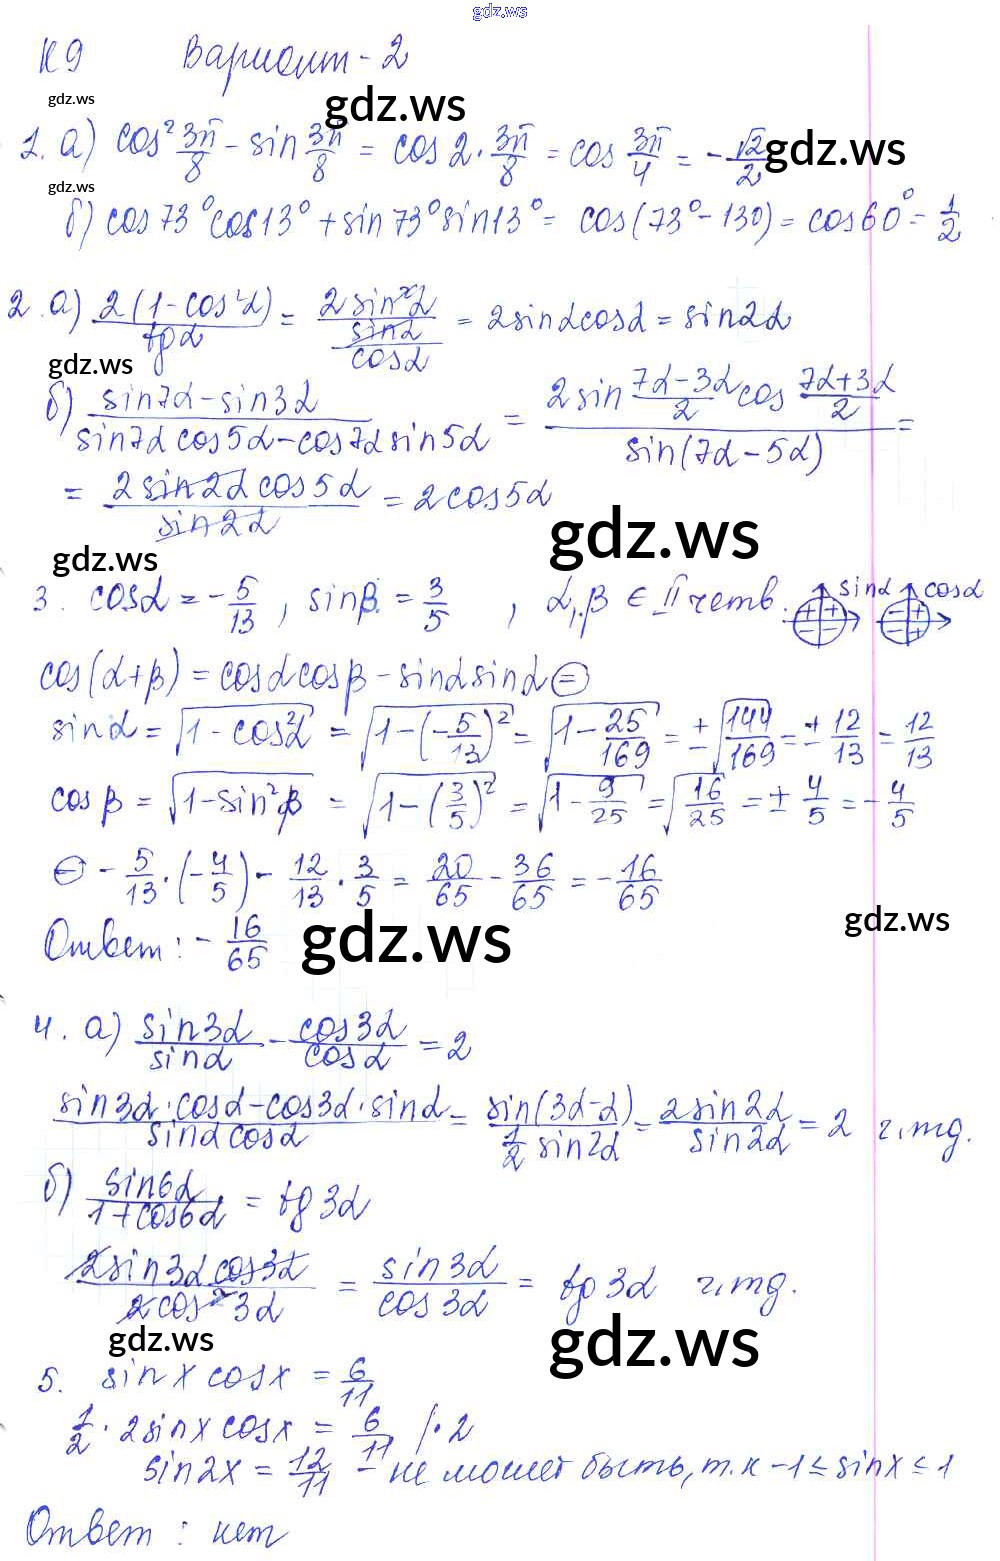 gdz.ws
К9 Вариант-2
gdz.ws gdz.ws
1. а) cos² 3π/8 - sin 3π/8 = cos 2 · 3π/8 = cos 3π/4 = -√2/2 gdz.ws
gdz.ws
б) cos73°cos13° + sin73°sin13° = cos(73°-130) = cos60° - 1/2
2. а) 2(1-cos²α)/tgα = 2sin²α/(sinα/cosα) = 2sinαcosα = sin2α
gdz.ws
б) (sin7α-sin3α)/(sin7α cos5α-cos7α sin5α) = (2sin (7α-3α)/2 cos (7α+3α)/2)/(sin(7α-5α)) =
= (2sin2α cos5α)/(sin2α) = 2cos5α
gdz.ws gdz.ws
3. cosα = -5/13, sinβ = 3/5, α,β ∈ II четв. sinα cosα
cos(α+β) = cosαcosβ - sinαsinα =
sinα = √(1-cos²α) = √(1-(-5/13)²) = √(1-25/169) = ±√(144/169) = ±12/13 = 12/13
cosβ = √(1-sin²β) = √(1-(3/5)²) = √(1-9/25) = √(16/25) = ±4/5 = -4/5
= -5/13·(-4/5) - 12/13 · 3/5 = 20/65 - 36/65 = -16/65
Ответ: -16/65 gdz.ws gdz.ws
4. а) sin3α/sinα - cos3α/cosα = 2
(sin3α·cosα-cos3α·sinα)/(sinαcosα) = sin(3α-α)/(1/2 sin2α) = 2sin2α/sin2α = 2 ч.тд.
б) sin6α/(1+cos6α) = tg3α
2sin3αcos3α/2cos²3α = sin3α/cos3α = tg3α ч.тд.
gdz.ws gdz.ws
5. sinxcosx = 6/11
1/2 · 2sinxcosx = 6/11 /·2
sin2x = 12/11 - не может быть, т.к -1≤sinx≤1
Ответ: нет